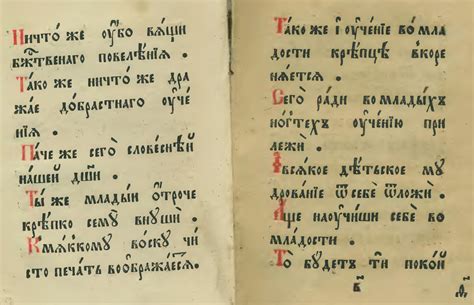 Ничто́же ᲂу҆́бо вѧщи
бж҃твенаго повелѣ́нїѧ .
Та́коже ничто́же дра
жа́е до́брастнаго ᲂу҆че́
нїѧ .
Па́че же сегѡ̀ слове́снѣй
на́шей дш҃и .
Ты́ же млады́й ѻ҆́троче
крѣ́пко семꙋ̀ внꙋшѝ .
К мѧ́ккомꙋ во́скꙋ чи
сто печа́ть воѡбража́етсѧ .
Та́коже и҆ ᲂу҆че́нїе во мла
дости крѣ́пцѣ вкоре
нѧ́етсѧ .
Сегѡ̀ ра́ди во млады́хъ
но́гтехъ ᲂу҆че́нїю при
лежѝ .
И҆ всѧ́кое дѣ́тьское мꙋ
дрова́нїе ѿ себѐ ѿложѝ .
А҆́ще наᲂучи́ши себѐ во
мла́дости .
То̀ бꙋ́детъ тѝ поко́й
в҃